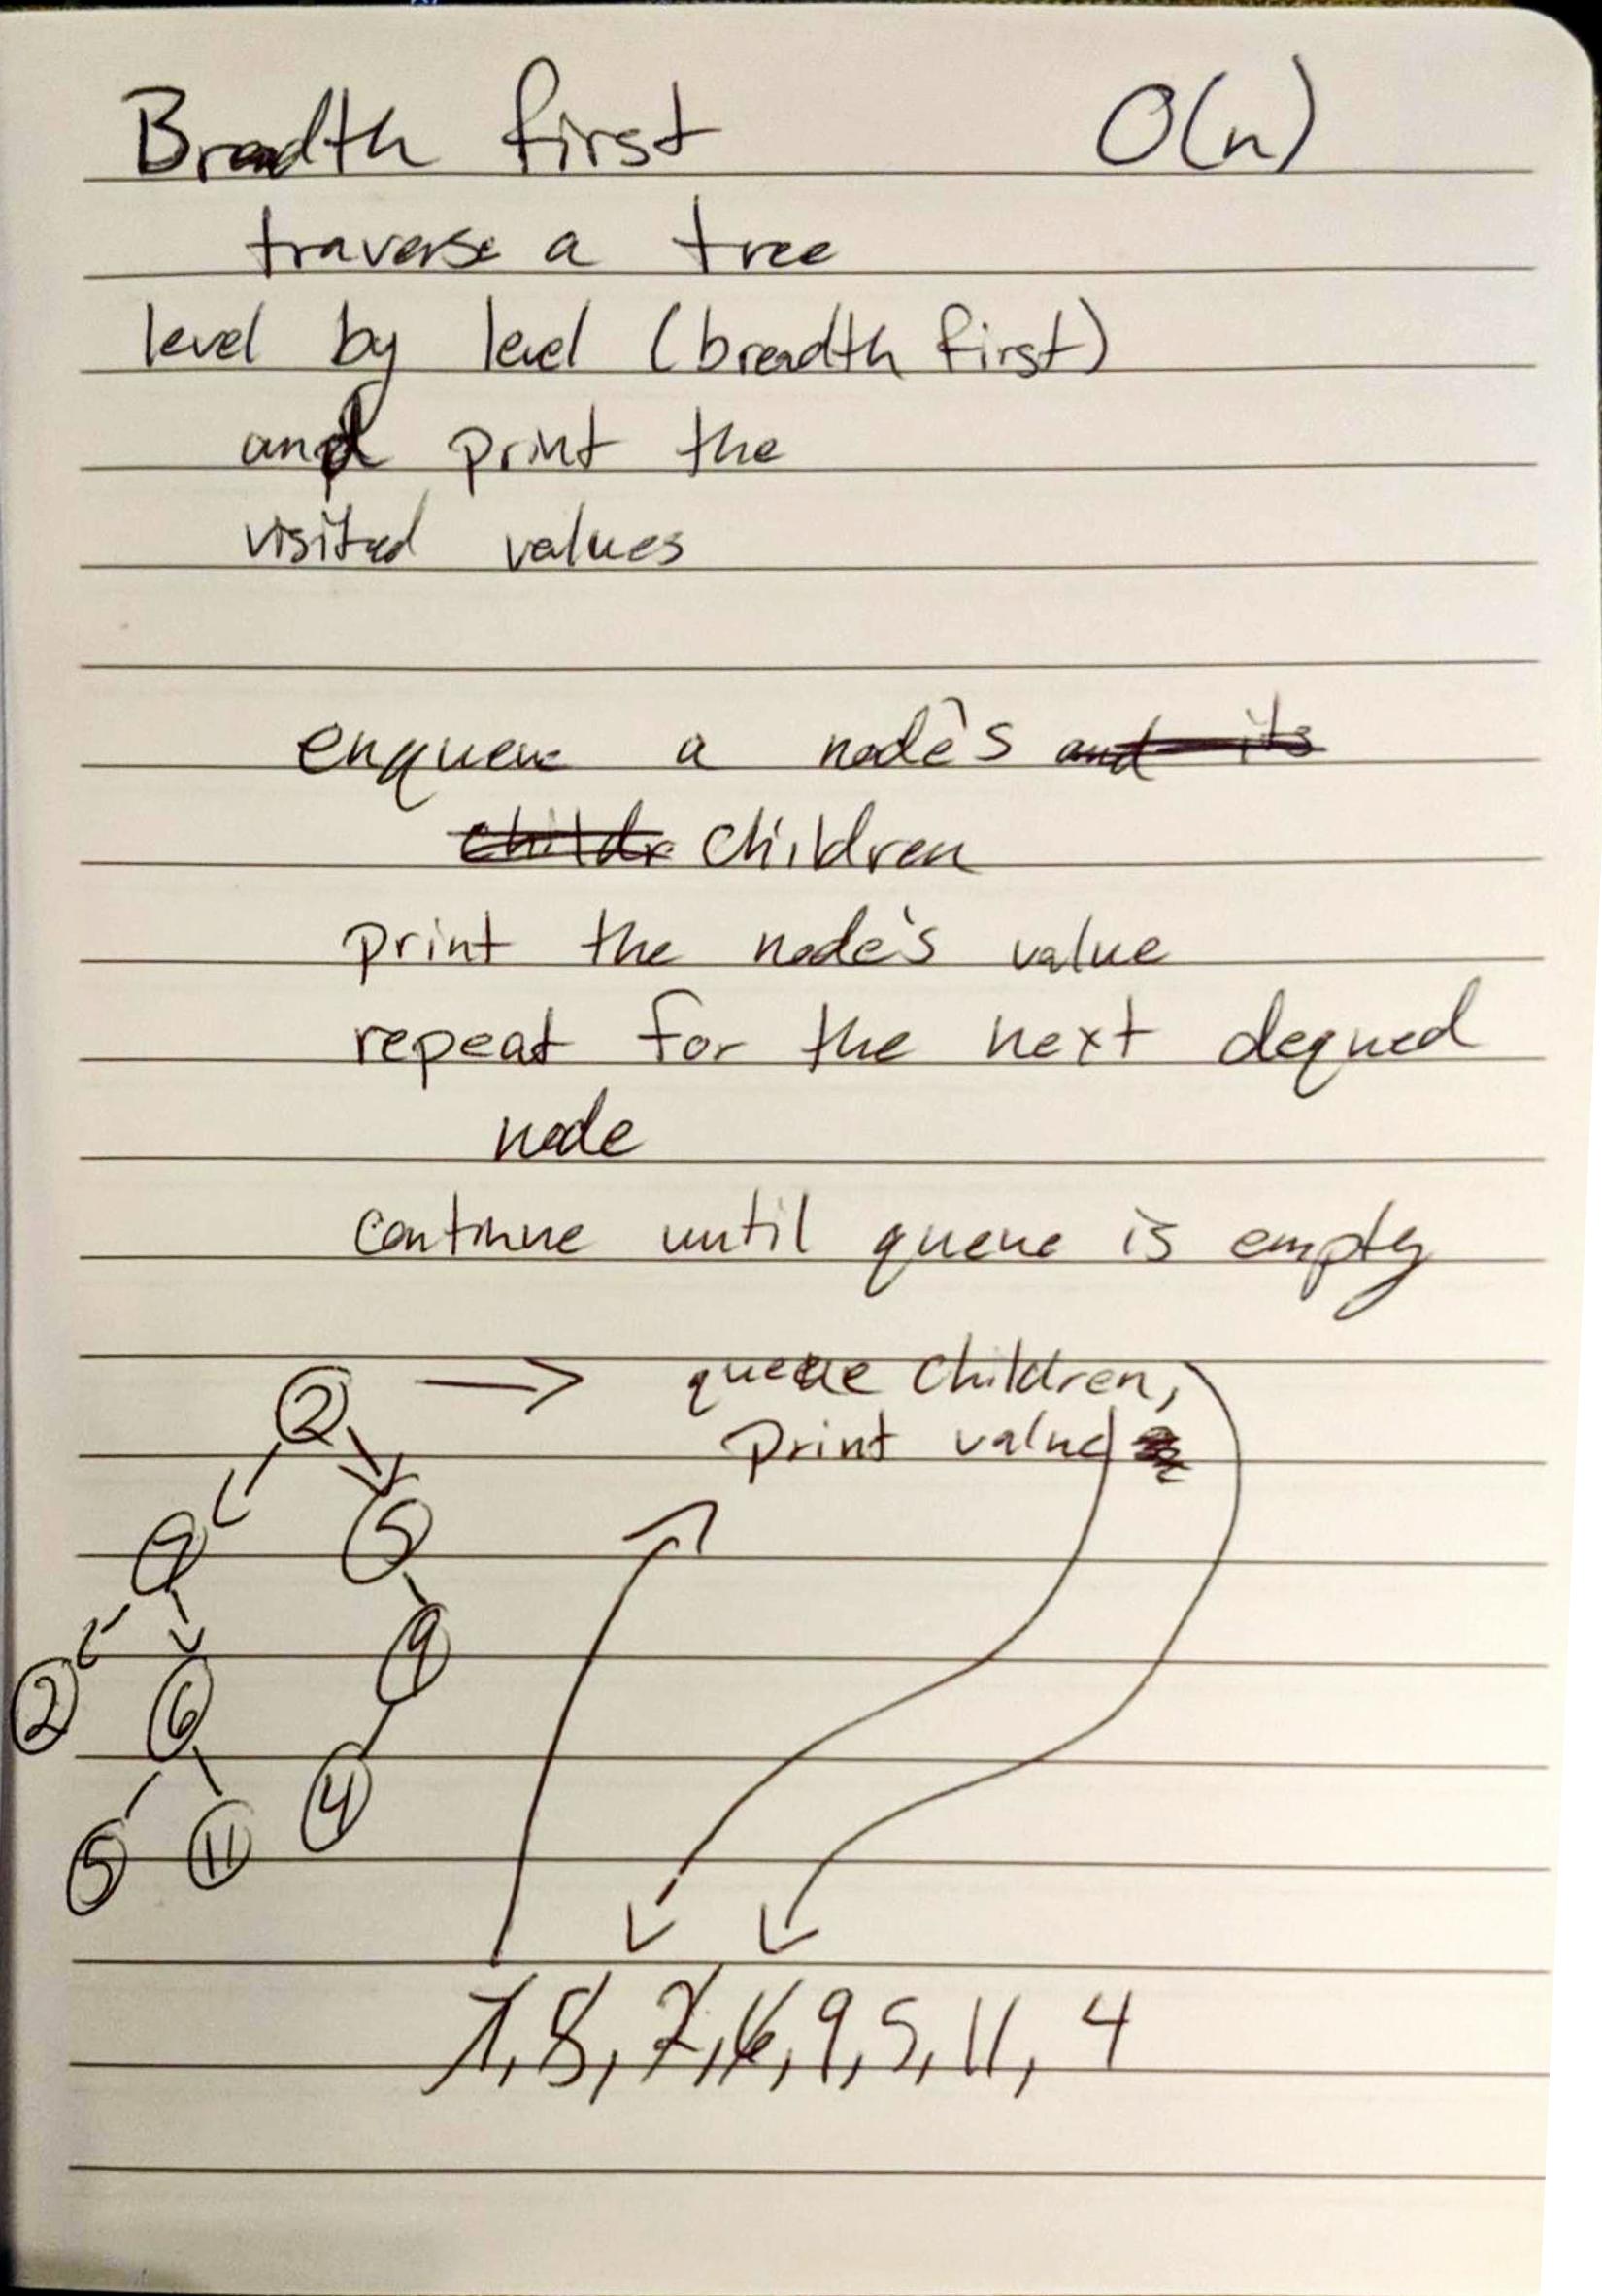 Breadth first O(n)
traverse a tree
level by level (breadth first)
and print the
visited values
enqueue a node's and its
childr children
print the node's value
repeat for the next dequed
node
continue until queue is empty
2 → queue children,
print value
7 5
2 6 9
5 11 4
7, 8, 2, 6, 9, 5, 11, 4